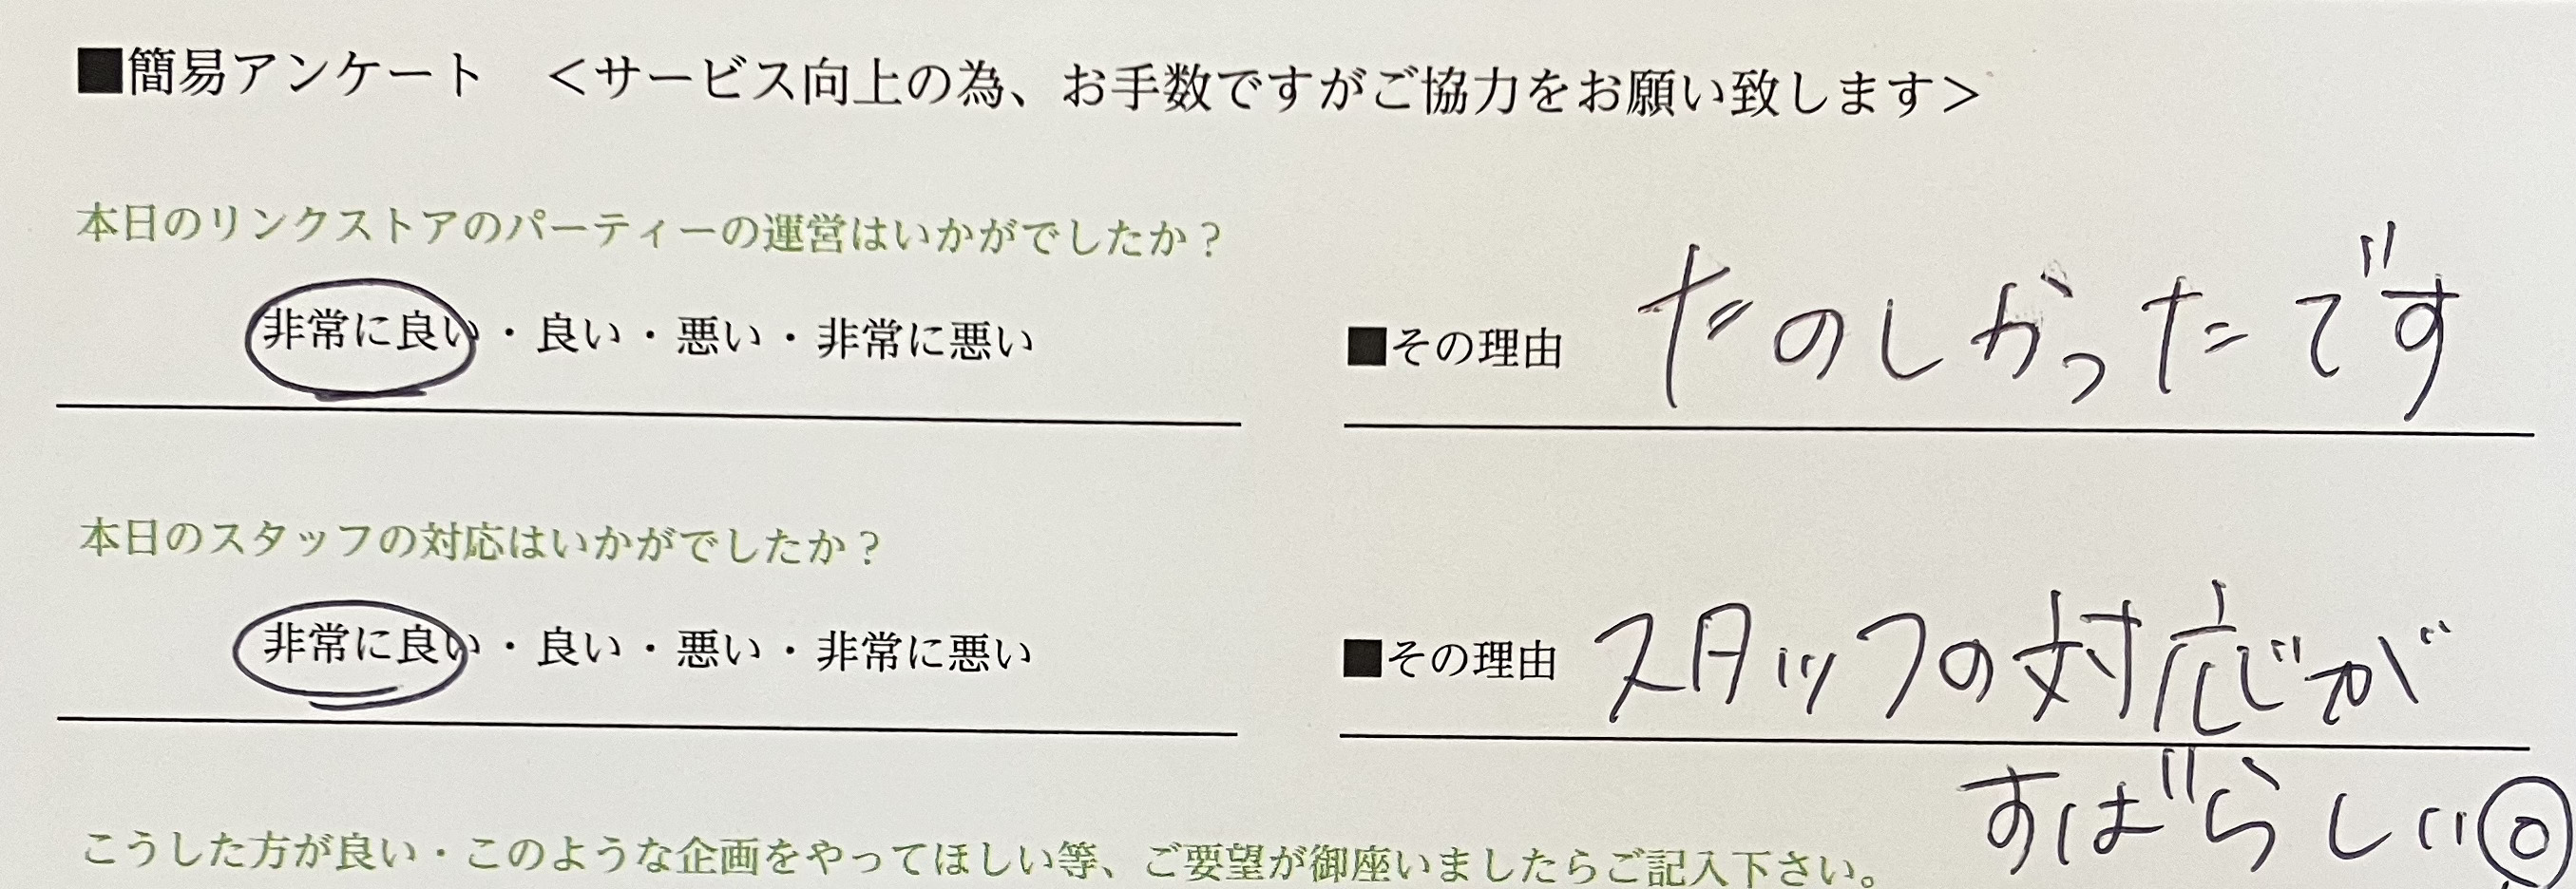 ■簡易アンケート　＜サービス向上の為、お手数ですがご協力をお願い致します＞
本日のリンクストアのパーティーの運営はいかがでしたか？
非常に良い・良い・悪い・非常に悪い　■その理由　たのしかったです
本日のスタッフの対応はいかがでしたか？
非常に良い・良い・悪い・非常に悪い　■その理由　スタッフの対応が
すばらしい◎
こうした方が良い・このような企画をやってほしい等、ご要望が御座いましたらご記入下さい。